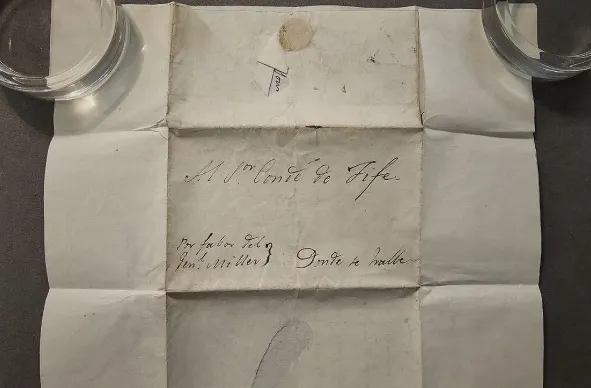 Al Sor. Conde de Fife.
Por fabor del
Genl. Miller } Donde se halle